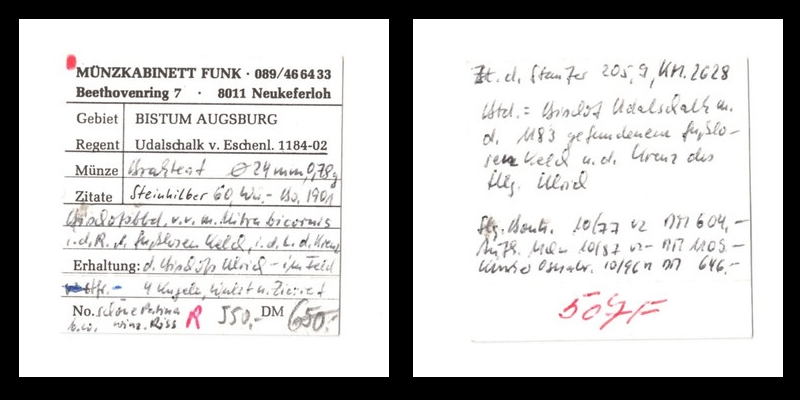 MÜNZKABINETT FUNK · 089/46 64 33
Beethovenring 7 · 8011 Neukeferloh
Gebiet BISTUM AUGSBURG
Regent Udalschalk v. Eschenl. 1184-02
Münze Brakteat Ø 24 mm 0,78g
Zitate Steinhilber 60, 1901
Bischofsbb. v.v. m. Mitra bicornis
i.d.R. d. fußlosen Kelch, i.d.L.d. Kreuz
Erhaltung: d. Bischofs Ulrich - im Feld
4 Kugeln, Wulst u. Zierrat
No. schöne Patina
winz. Riss R 550,- DM 650,-
Zt. d. Staufer 205,9, KM. 2628
Bischof Udalschalk m.
d. 1183 gefundenem fußlo-
sen Kelch u. d. Kreuz des
Hlg. Ulrich
Slg. Bonh. 10/77 vz DM 604,-
10/87 vz- DM 1105,-
Künker Osnabr. 10/96 DM 646,-